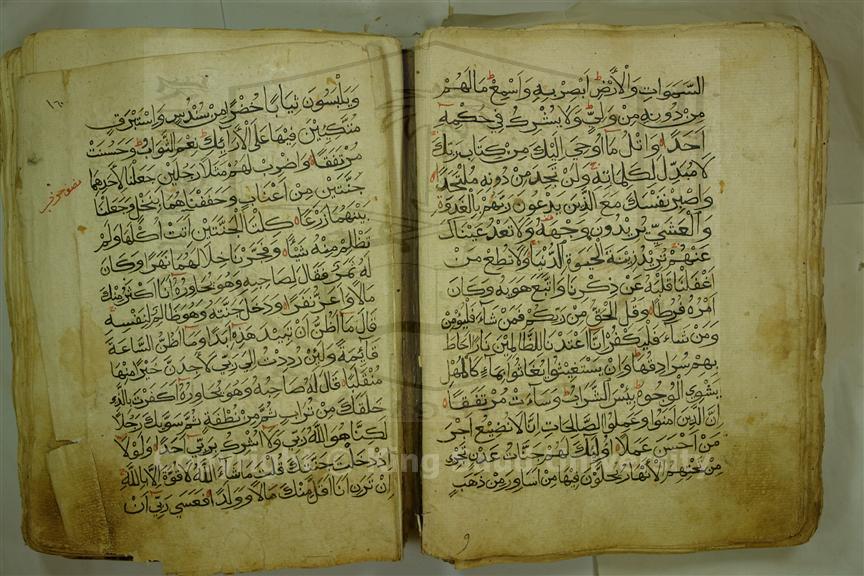 السموات والأرض ابصر به واسمع ما لهم
من دونه من ولي ولا يشرك في حكمه
احدا واتل ما اوحي اليك من كتاب ربك
لا مبدل لكلماته ولن تجد من دونه ملتحدا
واصبر نفسك مع الذين يدعون ربهم بالغدوة
والعشي يريدون وجهه ولا تعد عيناك
عنهم تريد زينة الحيوة الدنيا ولا تطع من
اغفلنا قلبه عن ذكرنا واتبع هويه وكان
امره فرطا وقل الحق من ربكم فمن شاء فليؤمن
ومن شاء فليكفر انا اعتدنا للظالمين نارا احاط
بهم سرادقها وان يستغيثوا يغاثوا بماء كالمهل
يشوي الوجوه بئس الشراب وساءت مرتفقا
ان الذين امنوا وعملوا الصالحات انا لا نضيع اجر
من احسن عملا اولئك لهم جنات عدن تجري
من تحتهم الانهار يحلون فيها من اساور من ذهب
و
١٦٠
ويلبسون ثيابا خضرا من سندس واستبرق
متكئين فيها على الارائك نعم الثواب وحسنت
مرتفقا واضرب لهم مثلا رجلين جعلنا لاحدهما
جنتين من اعناب وحففناهما بنخل وجعلنا
بينهما زرعا كلتا الجنتين اتت اكلها ولم
تظلم منه شيئا وفجرنا خلالهما نهرا وكان
له ثمر فقال لصاحبه وهو يحاوره انا اكثر منك
مالا واعز نفرا ودخل جنته وهو ظالم لنفسه
قال ما اظن ان تبيد هذه ابدا وما اظن الساعة
قائمة ولئن رددت الى ربي لاجدن خيرا منها
منقلبا قال له صاحبه وهو يحاوره اكفرت بالذي
خلقك من تراب ثم من نطفة ثم سويك رجلا
لكنا هو الله ربي ولا اشرك بربي احدا ولولا
اذ دخلت جنتك قلت ما شاء الله لا قوة الا بالله
ان ترن انا اقل منك مالا وولدا فعسى ربي ان